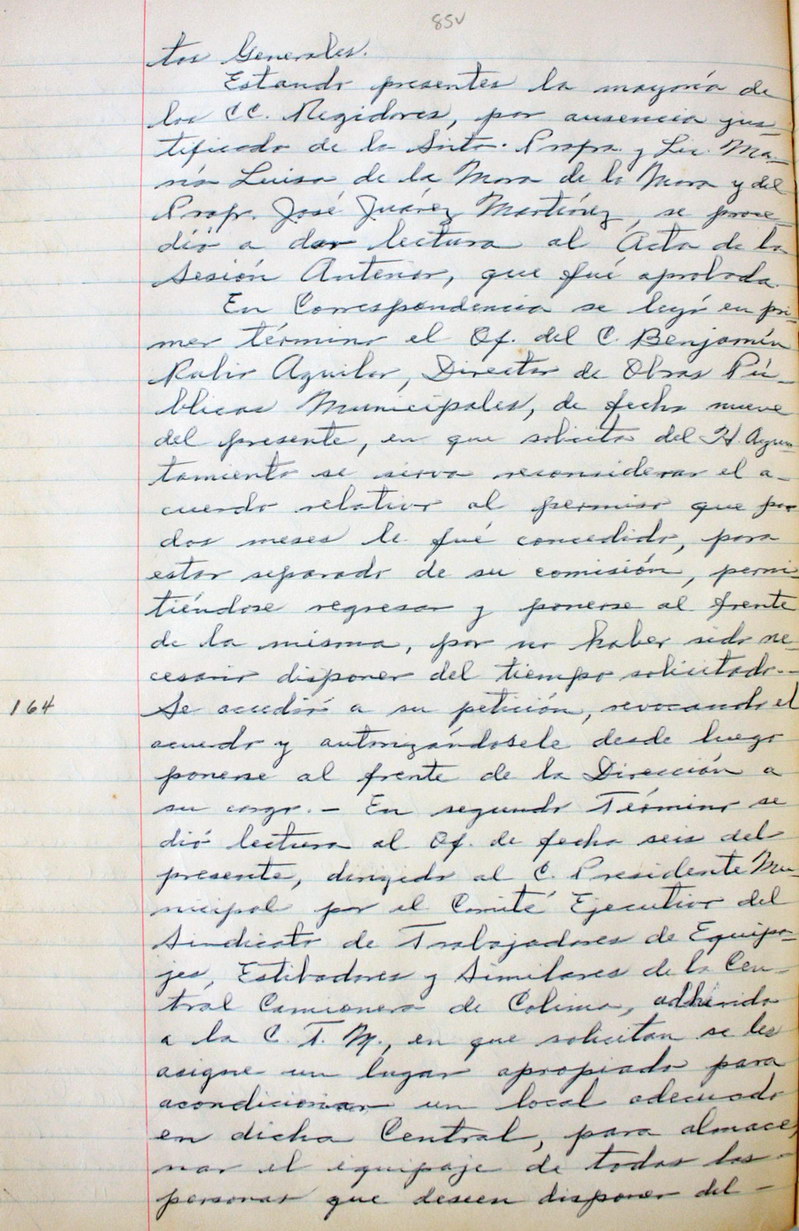 85v
tos Generales.
Estando presentes la mayoría de
los CC. Regidores, por ausencia jus-
tificada de la Srita. Profra. y Lic. Ma-
ría Luisa de la Mora de la Mora y del
Profr. José Juárez Martínez, se proce-
dió a dar lectura al Acta de la
Sesión Anterior, que fué aprobada.
En Correspondencia se leyó en pri-
mer término el Of. del C. Benjamín
Rubio Aguilar, Director de Obras Pú-
blicas Municipales, de fecha nueve
del presente, en que solicita del H. Ayun-
tamiento se sirva reconsiderar el a-
cuerdo relativo al permiso que por
dos meses le fué concedido, para
estar separado de su comisión, permi-
tiéndose regresar y ponerse al frente
de la misma, por no haber sido ne-
cesario disponer del tiempo solicitado.-
164 Se accedió a su petición, revocando el
acuerdo y autorizándosele desde luego
ponerse al frente de la Dirección a
su cargo.- En segundo Término se
dió lectura al Of. de fecha seis del
presente, dirigido al C. Presidente Mu-
nicipal por el Comité Ejecutivo del
Sindicato de Trabajadores de Equipa-
jes, Estibadores y Similares de la Cen-
tral Camionera de Colima, adherido
a la C. T. M., en que solicitan se les
asigne un lugar apropiado para
acondicionar un local adecuado
en dicha Central, para almace-
nar el equipaje de todas las -
personas que deseen disponer del -